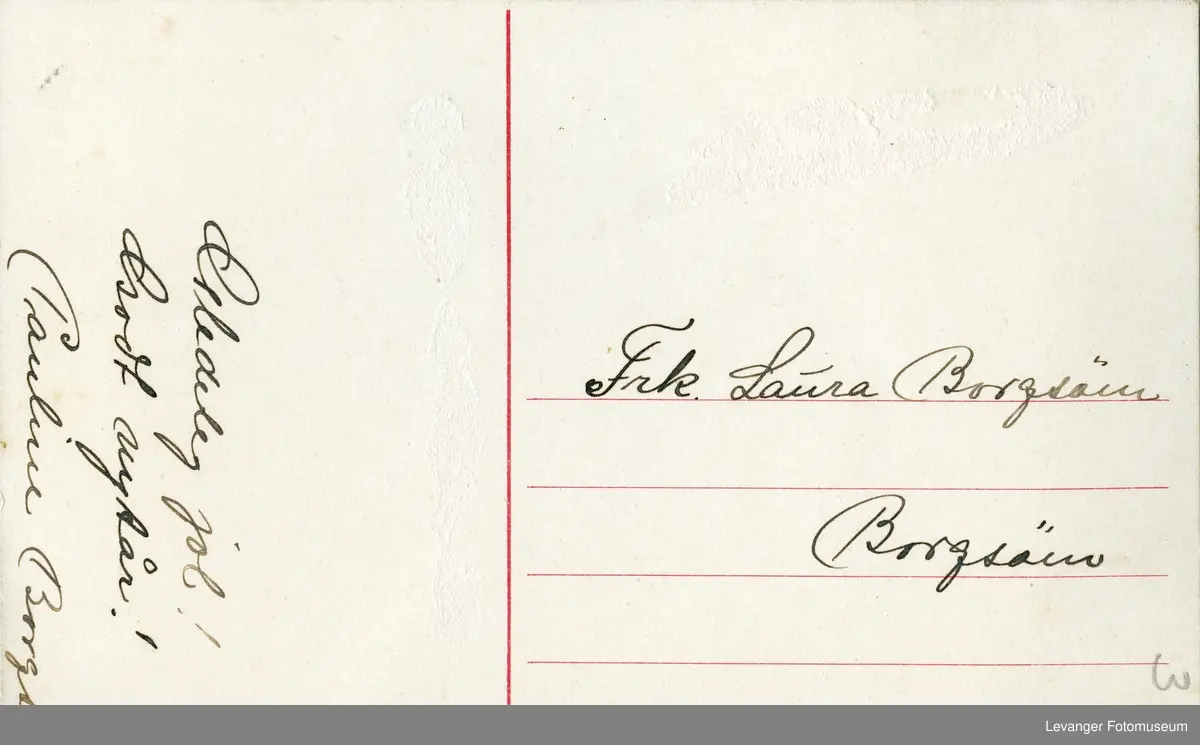 Glædeleg jól!
Godt nytår!
Pauline Borgs
Frk. Laura Borgsöm
Borgsöm
Levanger Fotomuseum